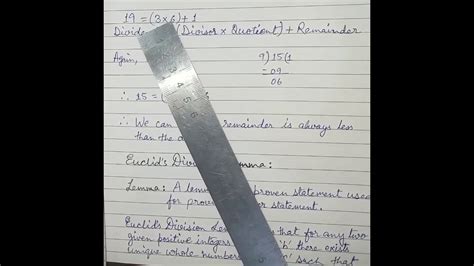 19 = (3×6) + 1
Divide (Divisor × Quotient) + Remainder
Again, 9)15(1
= 09
06
∴ 15 = (
∴ We can remainder is always less
than the
Euclid's Divi Lemma:
Lemma: A lem proven statement used
for prov er statement.
Euclid's Division Le s that for any two
given positive integers 'b' there exists
unique whole numbers such that